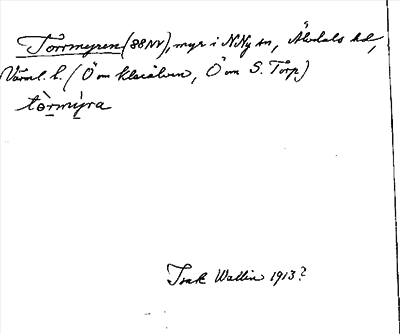 Torrmyren (88NV), myr i N Ny sn, Älvdals hd,
Värml. l. (Ö om Klarälven, Ö om S. Torp)
tòrmỳra
Isak Wallin 1913?